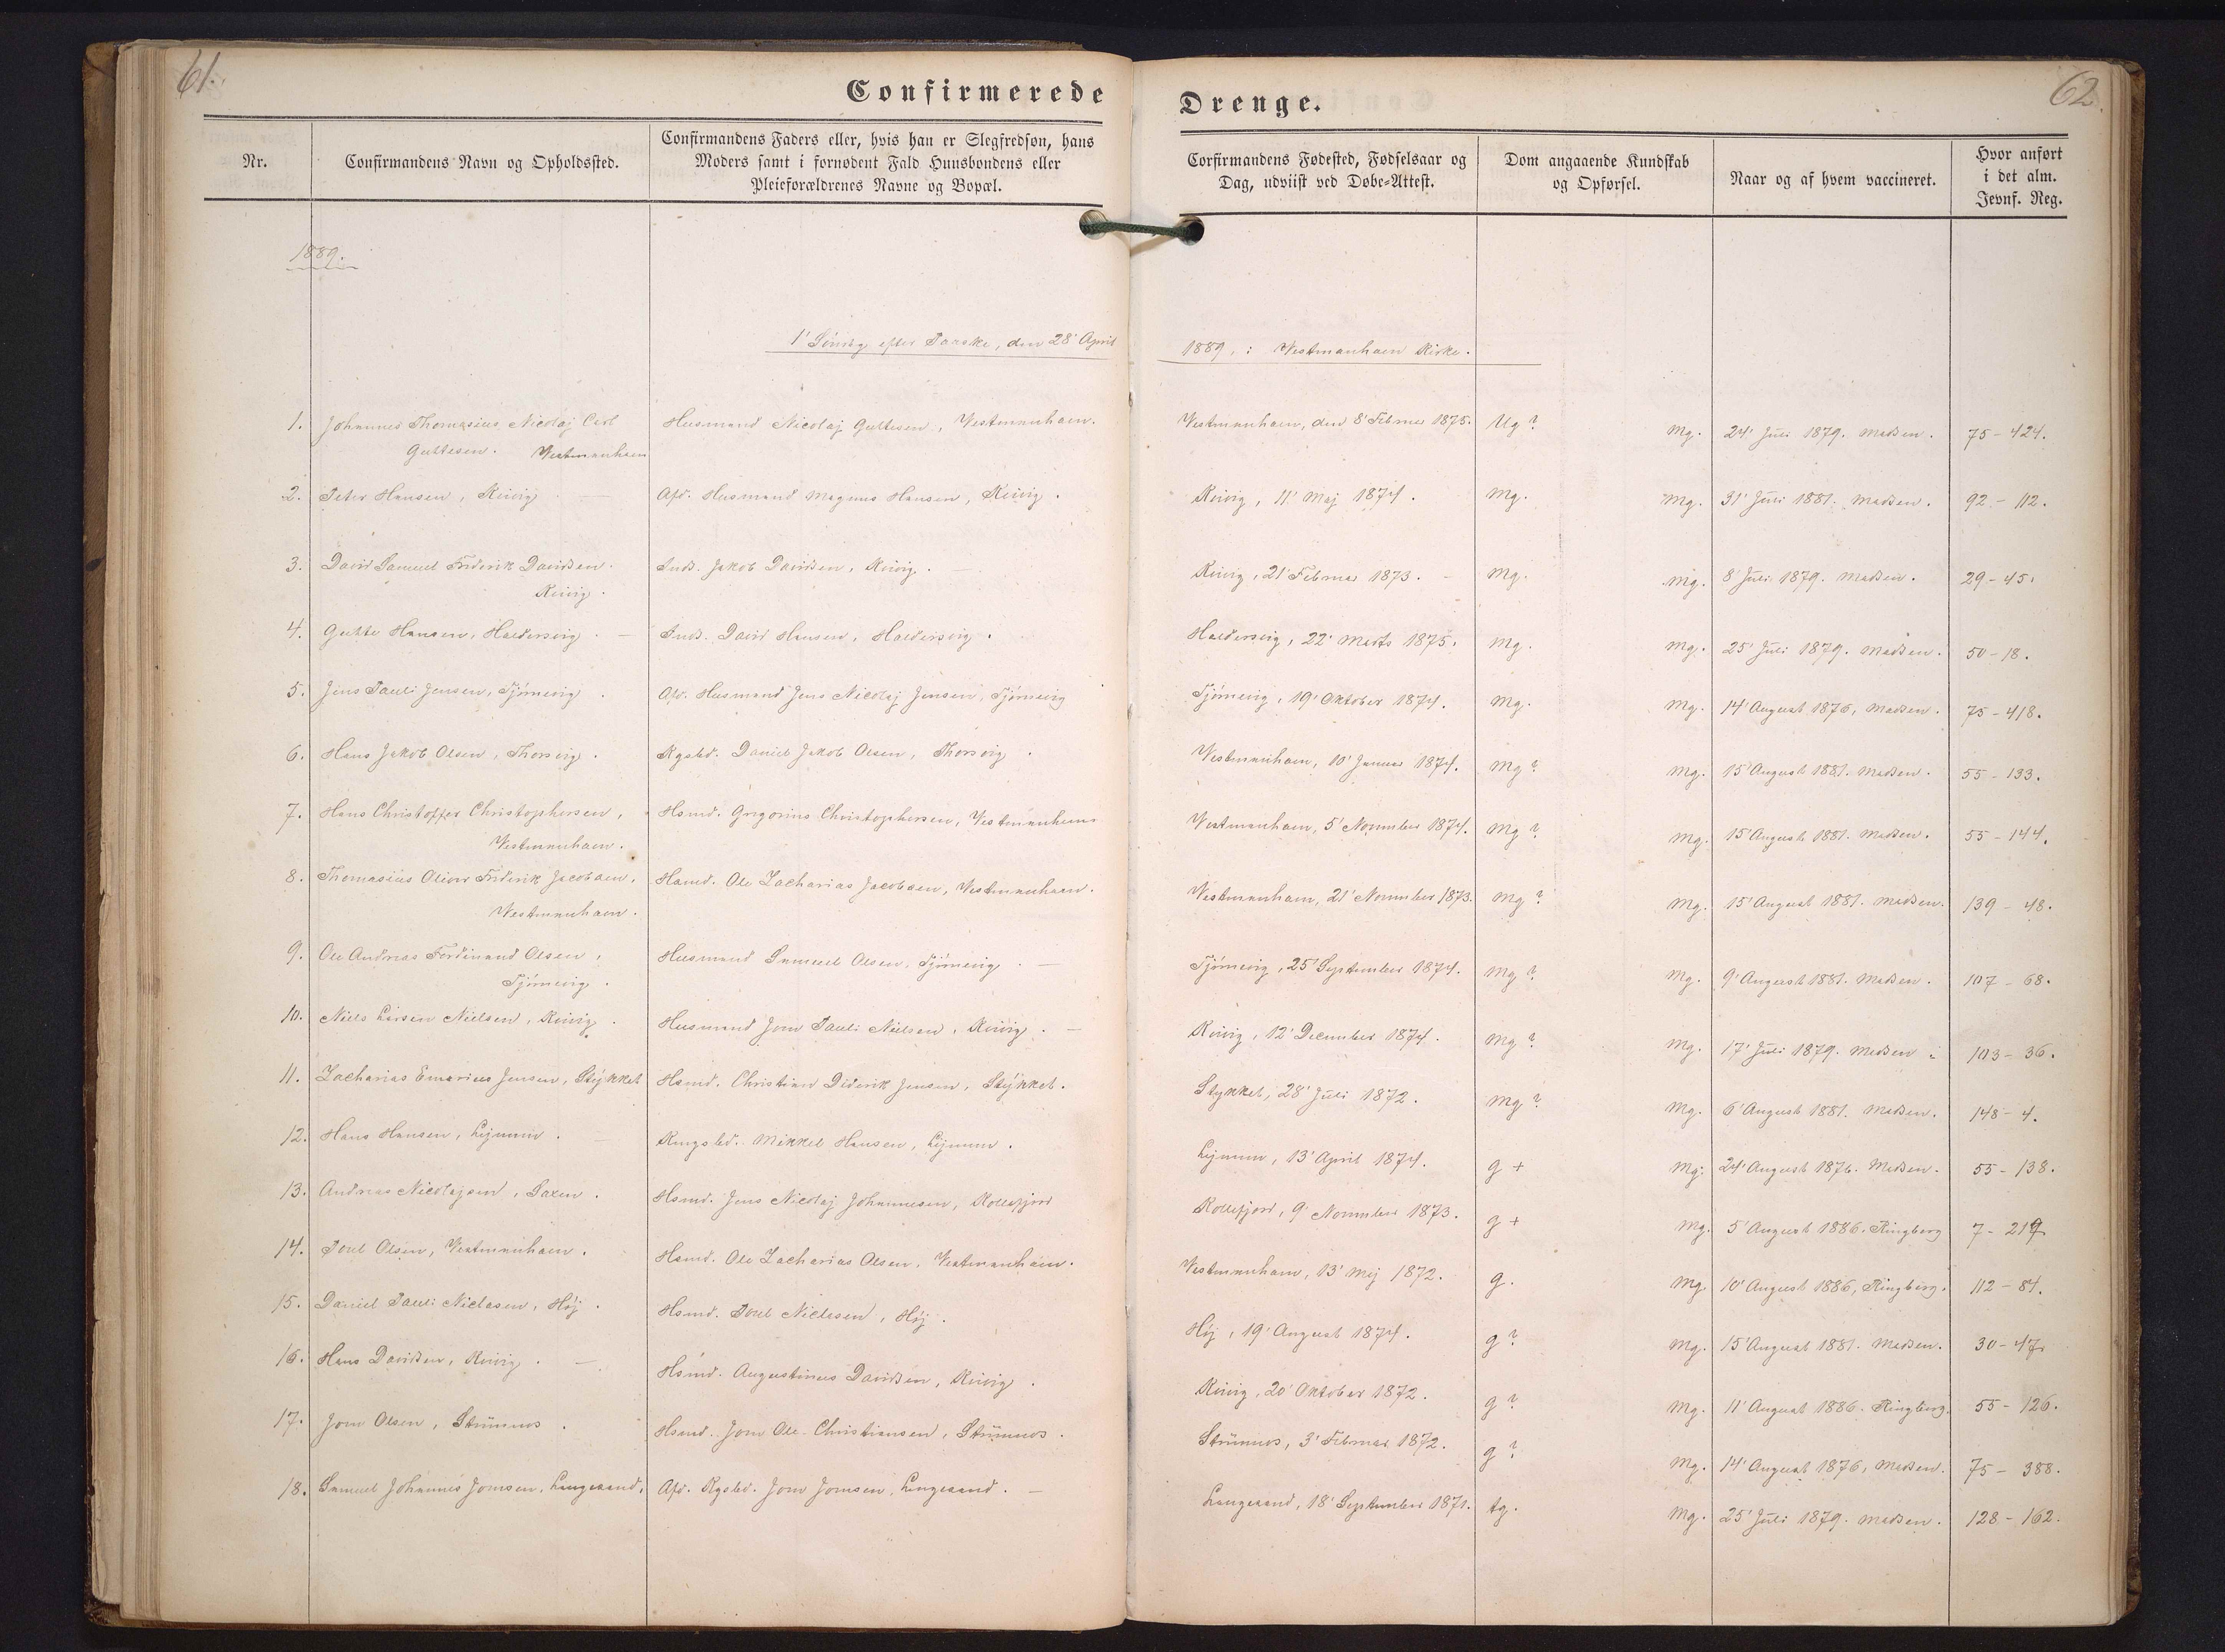 61.
Confirmerede
Nr.
Confirmandens Navn og Opholdssted.
Confirmandens Faders eller, hvis han er Slegfredsøn, hans
Moders samt i fornødent Fald Huusbondens eller
Pleieforældrenes Navne og Bopæl.
1889.
1' Søndag efter Paaske, den 28' April
1. Johannes Thomasius Nicolaj Carl
Guttesen. Westmanhavn
Husmand Nicolaj Guttesen, Westmanhavn.
2. Peter Hansen, Kvivig
Afd. Husmand Magnus Hansen, Kvivig.
3. David Samuel Friderik Davidsen.
Kvivig.
Inds. Jakob Davidsen, Kvivig.
4. Gutte Hansen, Haldersvig.
Inds. David Hansen, Haldersvig.
5. Jens Pauli Jensen, Tjörnevig.
Afd. Husmand Jens Nicolaj Jensen, Tjörnevig
6. Hans Jakob Olsen, Thorsvig.
Kgsbd. Daniel Jakob Olsen, Thorsvig.
7. Hans Christoffer Christophersen,
Westmanhavn.
Hsmd. Gregorius Christophersen, Westmanhavn
8. Thomasius Oliver Friderik Jacobsen,
Westmanhavn.
Hsmd. Ole Zacharias Jacobsen, Westmanhavn.
9. Ole Andreas Ferdinand Olsen,
Tjörnevig.
Husmand Samuel Olsen, Tjörnevig.
10. Niels Larsen Nielsen, Kvivig.
Husmand Jom Pauli Nielsen, Kvivig.
11. Zacharias Emarius Jensen, Stykket
Hsmd. Christian Diderik Jensen, Stykket.
12. Hans Hansen, Lejnum.
Kongsbd. Mikkel Hansen, Lejnum.
13. Andreas Nicolajsen, Saxen.
Hsmd. Jens Nicolaj Johannesen, Kollefjord
14. Poul Olsen, Westmanhavn.
Hsmd. Ole Zacharias Olsen, Westmanhavn.
15. Daniel Pauli Niclasen, Høj.
Hsmd. Poul Niclasen, Høj.
16. Hans Davidsen, Kvivig.
Hsmd. Augustinus Davidsen, Kvivig.
17. Jom Olsen, Strömnes.
Hsmd. Jom Ole Christiansen, Strömnes.
18. Samuel Johannes Jomsen, Langesand.
Afd. Kgsbd. Jom Jomsen, Langesand.
62.
Drenge.
Corfirmandens Fødested, Fødselsaar og
Dag, udviist ved Døbe-Attest.
Dom angaaende Kundskab
og Opførsel.
Naar og af hvem vaccineret.
Hvor anført
i det alm.
Jevnf. Reg.
1889, i Westmanhavn Kirke.
Westmanhavn, den 8' Februar 1875. Ug? Mg. 24' Juli 1879. Madsen. 75 - 424.
Kvivig, 11' Maj 1874. Mg. Mg. 31' Juli 1881. Madsen. 92 - 112.
Kvivig, 21' Februar 1873. Mg. Mg. 8' Juli 1879. Madsen. 29 - 45.
Haldersvig, 22' Marts 1875. Mg. Mg. 25' Juli 1879. Madsen. 50 - 18.
Tjörnevig, 19' Oktober 1874. Mg. Mg. 14' August 1876, Madsen. 75 - 418.
Westmanhavn, 10' Januar 1874. Mg? Mg. 15' August 1881. Madsen. 55 - 133.
Westmanhavn, 5' November 1874. Mg? Mg. 15' August 1881. Madsen. 55 - 144.
Westmanhavn, 21' November 1873. Mg? Mg. 15' August 1881. Madsen. 139 - 48.
Tjörnevig, 25' September 1874. Mg? Mg. 9' August 1881. Madsen. 107 - 68.
Kvivig, 12' December 1874. Mg? Mg. 17' Juli 1879. Madsen. 103 - 36.
Stykket, 28' Juli 1872. Mg? Mg. 6' August 1881. Madsen. 148 - 4.
Lejnum, 13' April 1874. g + Mg. 24' August 1876. Madsen. 55 - 138.
Kollefjord, 9' November 1873. g + Mg. 5' August 1886. Ringberg 7 - 219
Westmanhavn, 13' Maj 1872. g. Mg. 10' August 1886, Ringberg. 112 - 84.
Høj, 19' August 1874. g? Mg. 15' August 1881. Madsen. 30 - 47.
Kvivig, 20' Oktober 1872. g? Mg. 11' August 1886. Ringberg. 55 - 126.
Strömnes, 3' Februar 1872. g? Mg. 14' August 1876, Madsen. 75 - 388.
Langesand, 18' September 1871. tg. Mg. 25' Juli 1879. Madsen. 128 - 162.